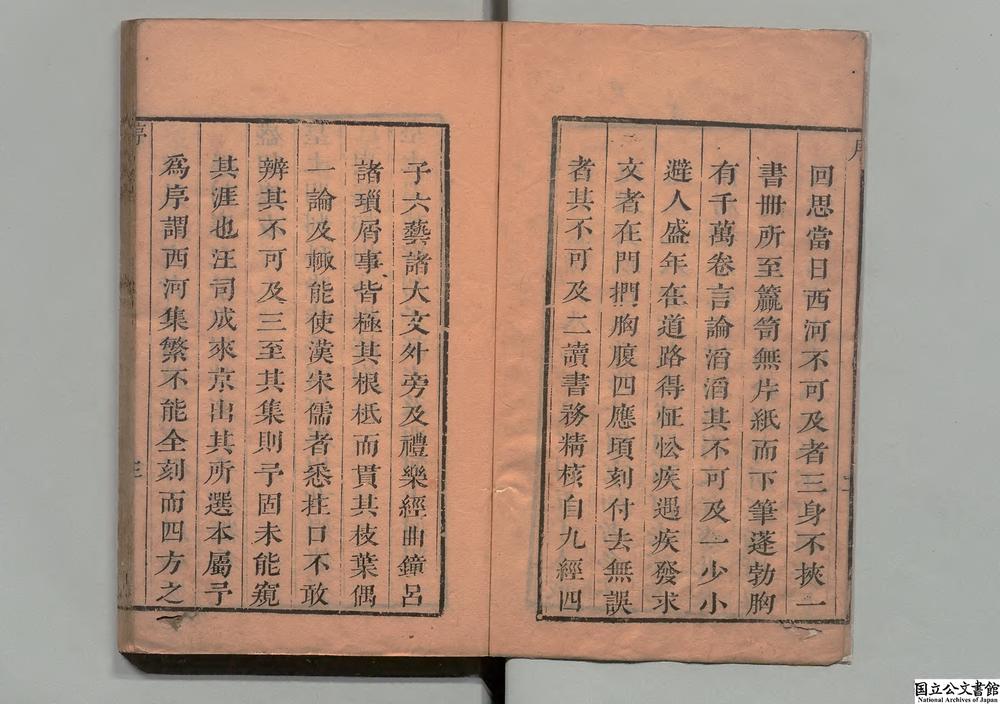 回思當日西河不可及者三身不挾一
書冊所至籯笥無片紙而下筆蓬勃胸
有千萬卷言論滔滔其不可及一少小
避人盛年在道路得怔忪疾遇疾發求
文者在門捫胸腹四應頃刻付去無誤
者其不可及二讀書務精核自九經四
子六藝諸大文外旁及禮樂經曲鐘呂
諸瑣屑事皆極其根柢而貫其枝葉偶
一論及輙能使漢宋儒者悉拄口不敢
辨其不可及三至其集則予固未能窺
其涯也汪司成來京出其所選本屬予
爲序謂西河集繁不能全刻而四方之
国立公文書館
National Archives of Japan